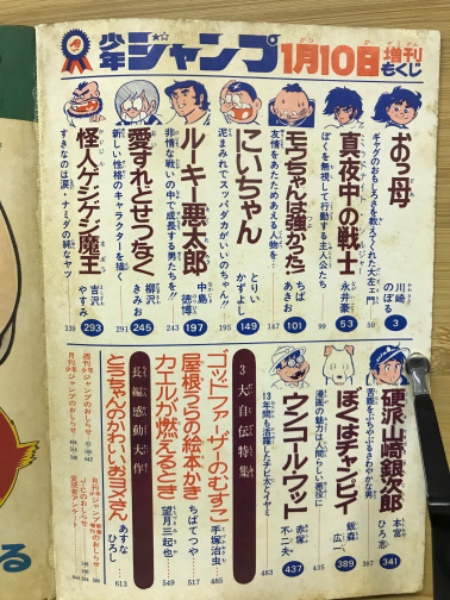 少年ジャンプ 1月10日 増刊 もくじ
おっ母
ギャグのおもしろさを教えてくれた大左ェ門
川崎のぼる
3
50
真夜中の戦士
ミッドナイト・ソルジャー
ぼくを無視して行動する主人公たち
永井豪
53
99
モッちゃんは強かった!
友情をあたためあえる人物を…
ちばあきお
101
147
にいちゃん
泥まみれでスッパダカがいいのちゃん!!
とりいかずよし
149
195
ルーキー悪太郎
非情な戦いの中で成長する男たちを!!
中島徳博
197
243
愛すれどせつなく
新しい性格のキャラクターを描く
柳沢きみお
245
291
怪人ゲジゲジ魔王
すきなのは涙・ナミダの純なヤツ
吉沢やすみ
293
339
硬派山崎銀次郎
苦難をぶちやぶるさわやかな男
本宮ひろ志
341
387
ぼくはチャンピイ
漫画の魅力は人間らしい悪役に
飯森広一
389
435
ウンコールワット
13年間も活躍したチビ太とイヤミ
赤塚不二夫
437
483
3大自伝特集
ゴッドファーザーのむすこ
手塚治虫
485
屋根うらの絵本かき
ちばてつや
517
カエルが燃えるとき
望月三起也
549
長編感動大作
とうちゃんのかわいいおヨメさん
あすなひろし
613
週刊少年ジャンプのおしらせ
月刊少年ジャンプのおしらせ
JCのおしらせ
愛読者アンケート
る